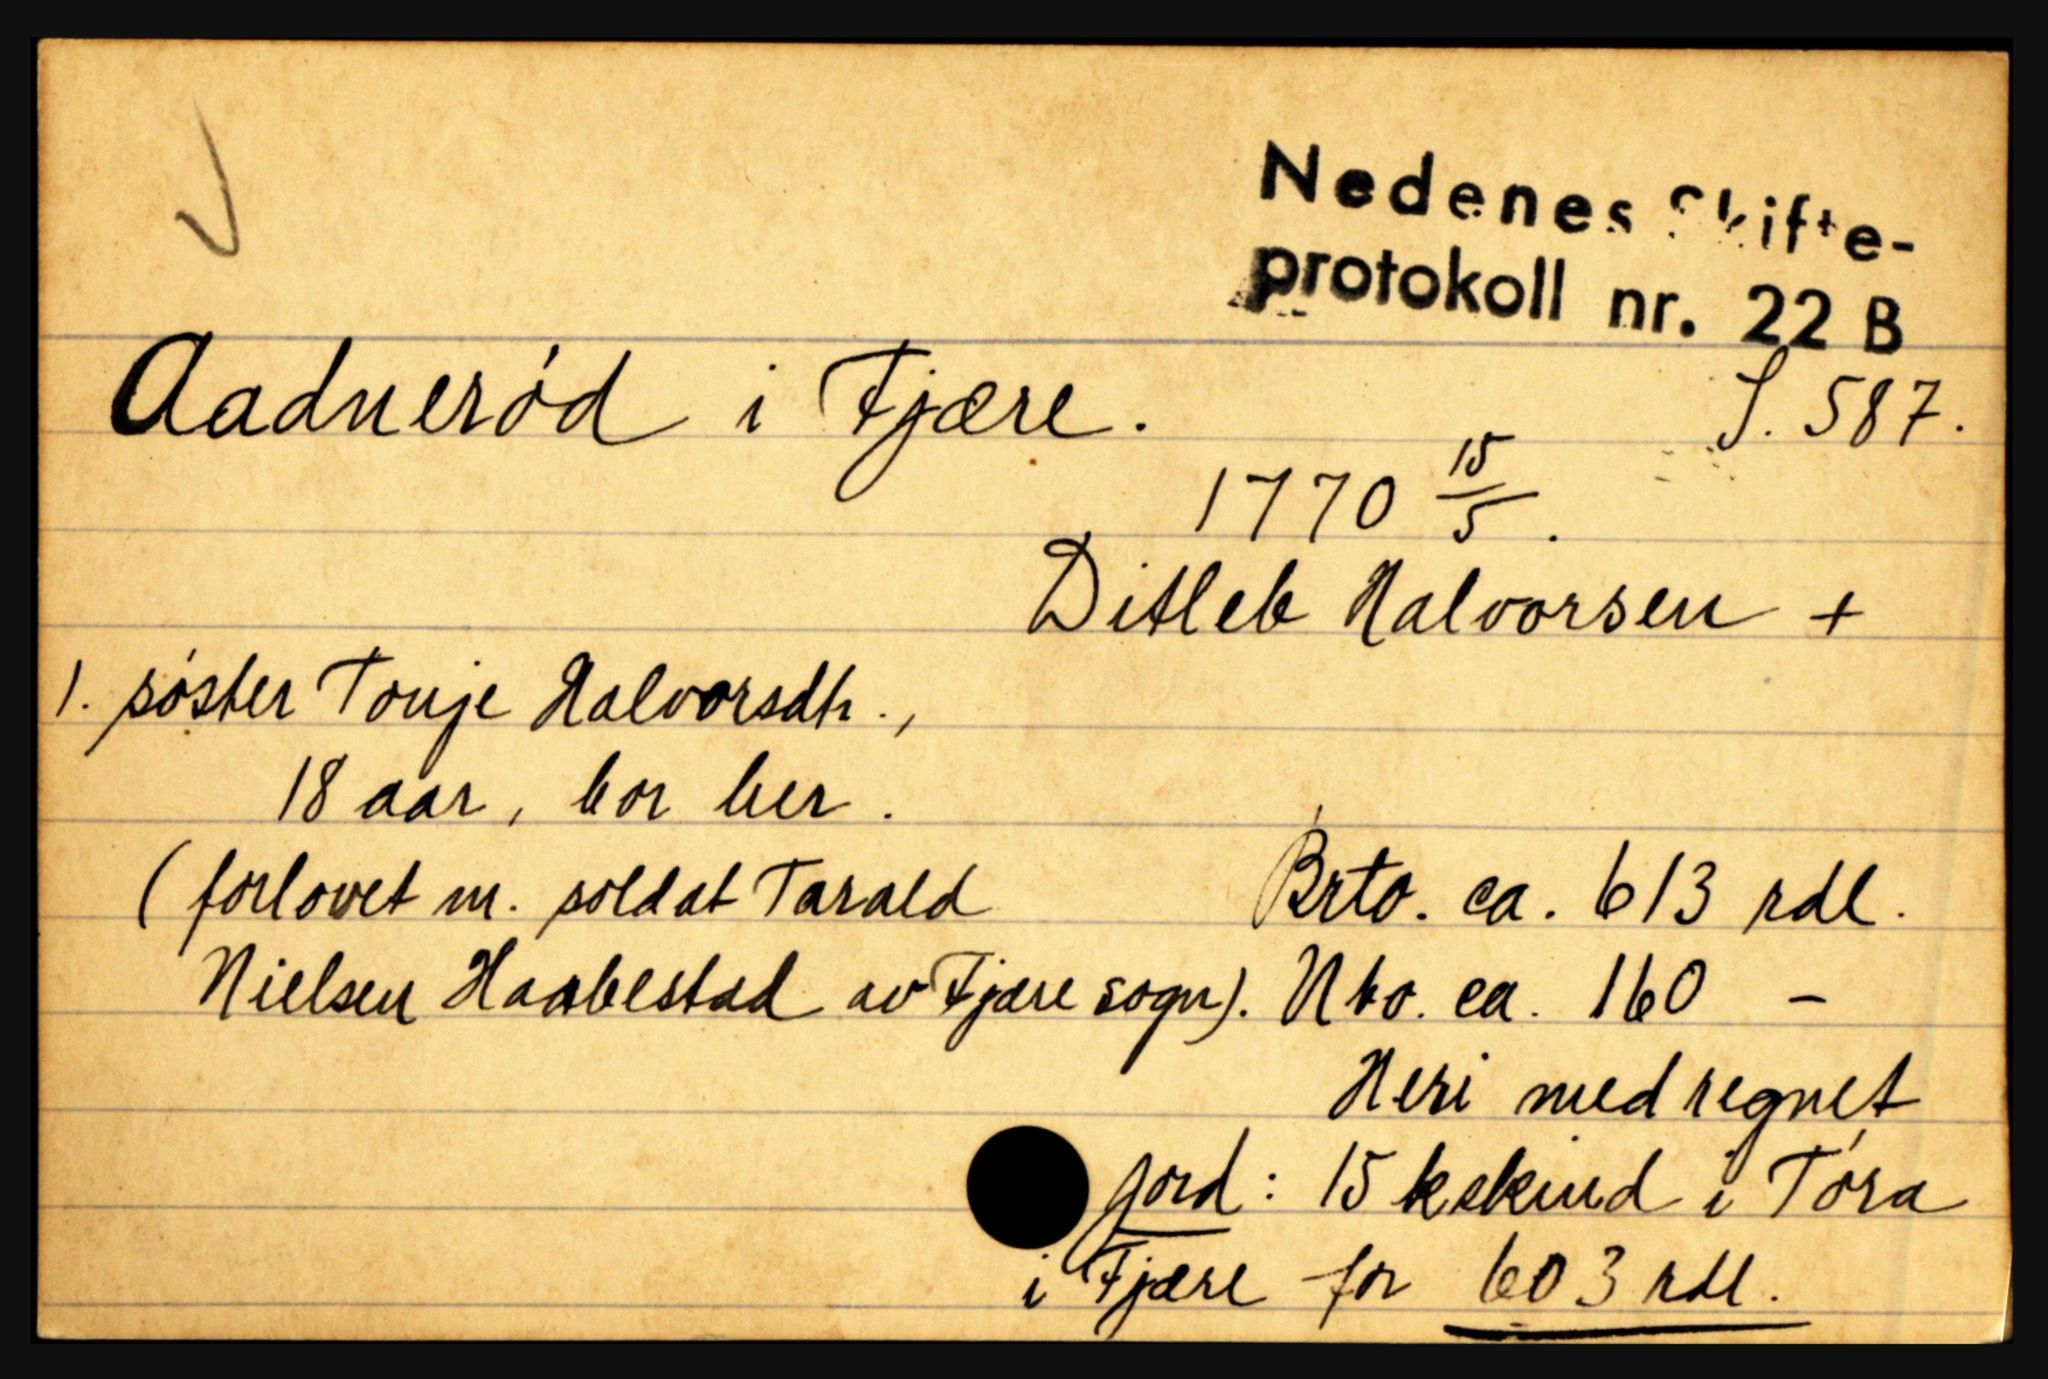 Nedenes Skifte-
protokoll nr. 22 B
Aadnerød i Fjære.
S. 587.
1770 15/5.
Ditleb Halvorsen +
1. søster Tonje Halvorsdtr.,
18 aar, bor her.
(forlovet m. soldat Tarald
Nielsen Haabestad av Fjære sogn).
Brto. ca. 613 rdl.
Nto. ca. 160 -
Heri medregnet
jord: 15 kskind i Tóra
i Fjære for 603 rdl.